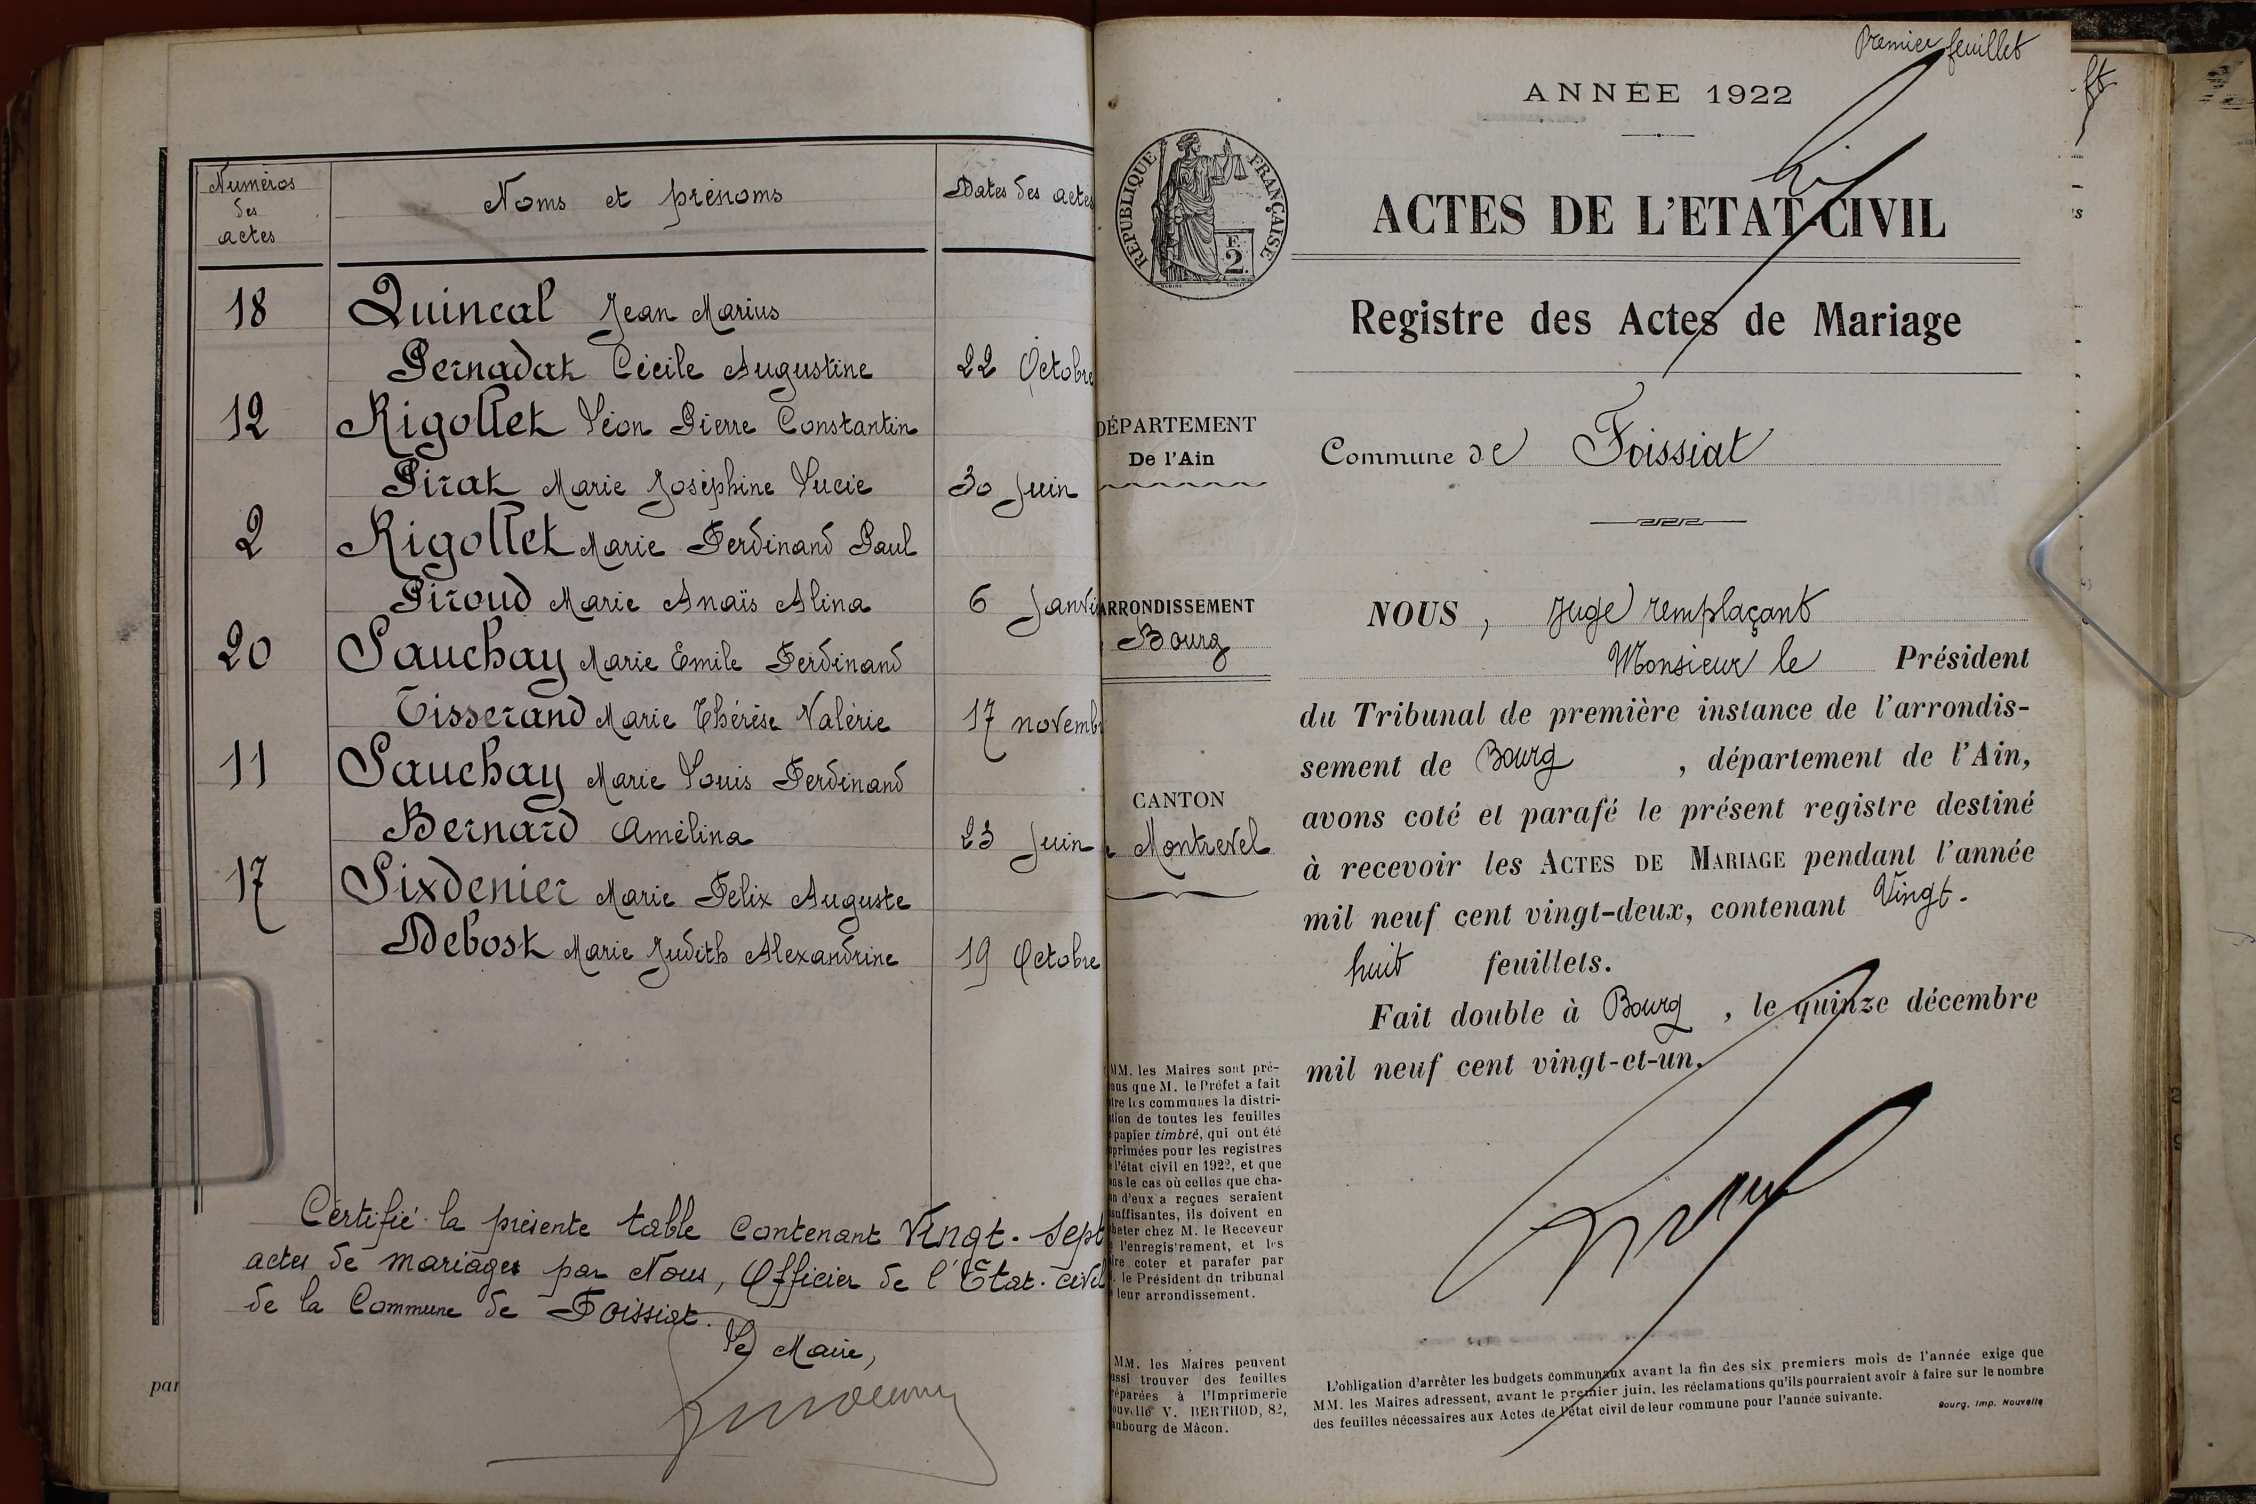 Numéros
des
actes
Noms et prénoms
Dates des actes
18 Quincal Jean Marius
Pernadat Cécile Augustine 22 Octobre
12 Rigollet Léon Pierre Constantin
Pirat Marie Joséphine Lucie 30 Juin
2 Rigollet Marie Ferdinand Paul
Piroud Marie Anaïs Alina 6 Janvi
20 Sauchay Marie Emile Ferdinand
Tisserand Marie Thérèse Valérie 17 novemb
11 Sauchay Marie Louis Ferdinand
Bernard Amélina 23 Juin
17 Sixdenier Marie Felix Auguste
Debost Marie Judith Alexandrine 19 Octobre
Certifié la présente table contenant Vingt-sept
actes de mariages par Nous, Officier de l'Etat-civil
de la Commune de Foissiat.
Le Maire,
par
Premier feuillet
ANNÉE 1922
RÉPUBLIQUE FRANÇAISE
F.
2
ACTES DE L'ETAT-CIVIL
Registre des Actes de Mariage
DÉPARTEMENT
De l'Ain
Commune de Foissiat
ARRONDISSEMENT
Bourg
CANTON
Montrevel
NOUS, Juge remplaçant
Monsieur le Président
du Tribunal de première instance de l'arrondis-
sement de Bourg, département de l'Ain,
avons coté et parafé le présent registre destiné
à recevoir les ACTES DE MARIAGE pendant l'année
mil neuf cent vingt-deux, contenant Vingt-
huit feuillets.
Fait double à Bourg, le quinze décembre
mil neuf cent vingt-et-un.
MM. les Maires sont pré-
nus que M. le Préfet a fait
tre les communes la distri-
tion de toutes les feuilles
papier timbré, qui ont été
primées pour les registres
l'état civil en 1922, et que
ns le cas où celles que cha-
n d'eux a reçues seraient
suffisantes, ils doivent en
heter chez M. le Receveur
l'enregistrement, et les
ire coter et parafer par
le Président du tribunal
leur arrondissement.
MM. les Maires peuvent
ssi trouver des feuilles
réparées à l'Imprimerie
ouvelle V. BERTHOD, 82,
ubourg de Mâcon.
L'obligation d'arrêter les budgets communaux avant la fin des six premiers mois de l'année exige que
MM. les Maires adressent, avant le premier juin, les réclamations qu'ils pourraient avoir à faire sur le nombre
des feuilles nécessaires aux Actes de l'état civil de leur commune pour l'année suivante.
Bourg, Imp. Nouvelle